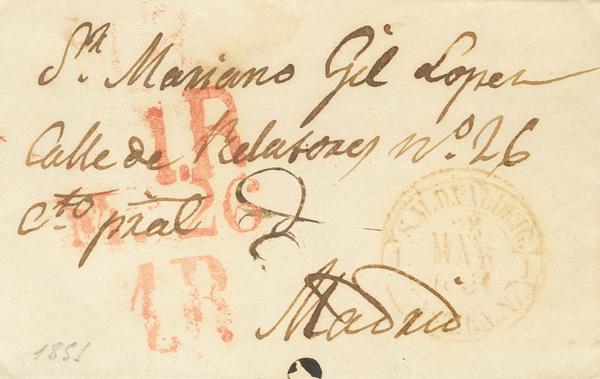 Sr. Mariano Gil Lopez
Calle de Relatores nº. 26
Cto. pral
Madrid
1R
M 26
1R.
MAY
1851